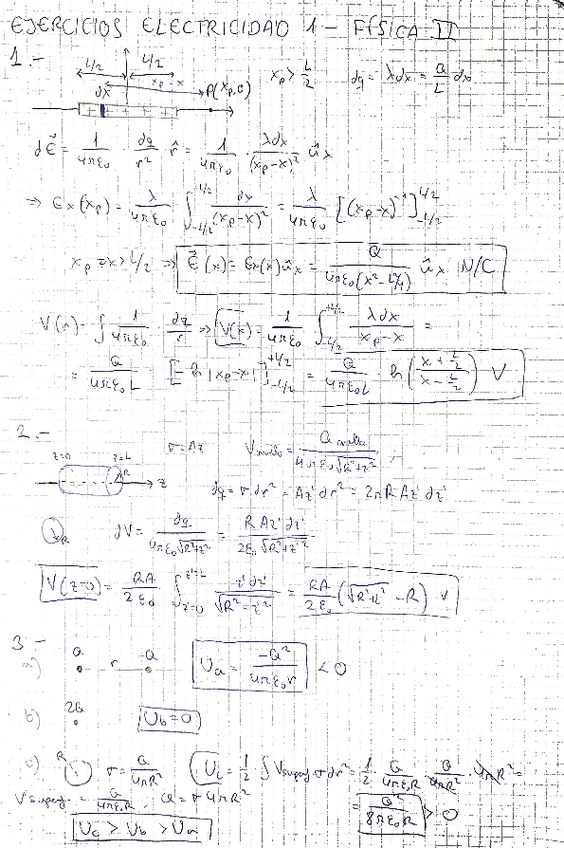 EJERCICIOS ELECTRICIDAD 1 - FÍSICA II
1.-
L/2 L/2
dx x_p - x P(x_p,0) x_p > L/2 dq = λdx = Q/L dx
dE⃗ = 1/4πε₀ dq/r² r̂ = 1/4πε₀ · λdx/(x_p-x)² û_x
⇒ E_x(x_p) = λ/4πε₀ ∫_{-L/2}^{L/2} dx/(x_p-x)² = λ/4πε₀ [(x_p-x)⁻¹]_{-L/2}^{L/2}
x_p = x > L/2 ⇒ E⃗(x) = E_x(x) û_x = Q/4πε₀(x²-L²/4) û_x N/C
V(r) = ∫ 1/4πε₀ dq/r ⇒ V(x) = 1/4πε₀ ∫_{-L/2}^{+L/2} λdx/x_p-x =
= Q/4πε₀L [-ln|x_p-x|]_{-L/2}^{+L/2} = Q/4πε₀L ln(x+L/2 / x-L/2) V
2.-
z=0 z=L R z
σ = Az V_anillo = Q anillo/4πε₀√R²+z² ,
dq = σ dr² = Az' dr² = 2πR Az' dz'
R dV = dq/4πε₀√R²+z'² = R Az' dz'/2ε₀√R²+z'²
V(z=0) = RA/2ε₀ ∫_{z'=0}^{z'=L} z' dz'/√R²-z'² = RA/2ε₀ (√R²+L² - R) V
3.-
a) Q r -Q U_a = -Q²/4πε₀r < 0
b) 2Q U_b = 0
c) R σ = Q/4πR² U_c = 1/2 ∫ V_superf σ dr² = 1/2 · Q/4πε₀R · Q/4πR² · 4πR² =
V_superf = Q/4πε₀R , Q = σ 4πR² = Q²/8πε₀R > 0
U_c > U_b > U_a